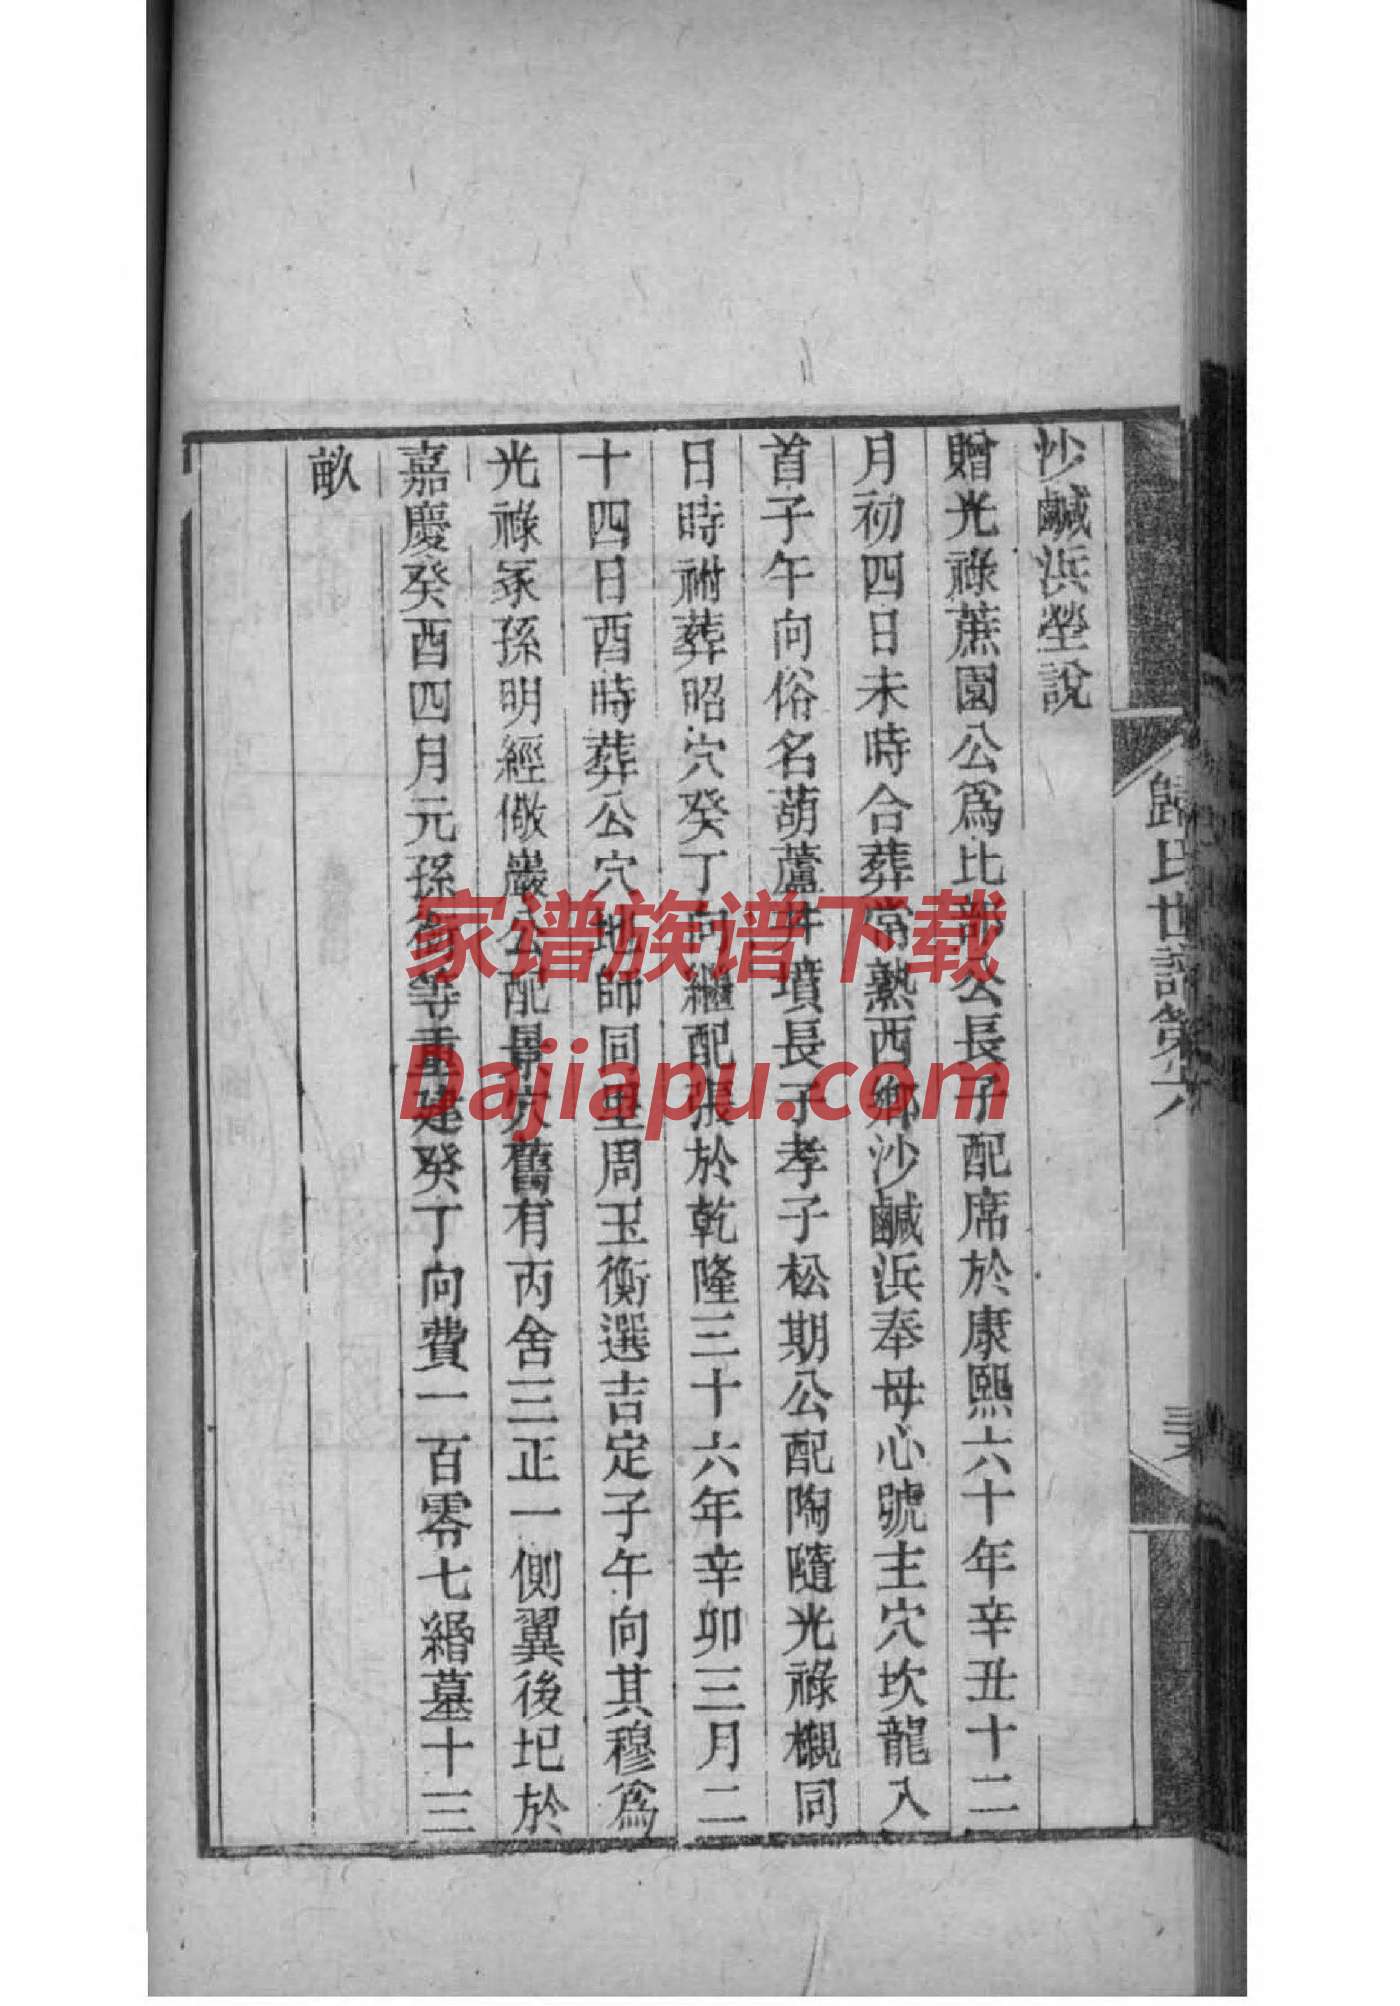 沙鹹浜塋說
贈光祿蔗園公為比部公長子配席於康熙六十年辛丑十二
月初四日未時合葬常熟西鄉沙鹹浜奉母心號主穴坎龍入
首子午向俗名葫蘆井墳長子孝子松期公配陶隨光祿櫬同
日時祔葬昭穴癸丁向繼配張於乾隆三十六年辛卯三月二
十四日酉時葬公穴地師同里周玉衡選吉定子午向其穆為
光祿冢孫明經儆巖公配景方舊有丙舍三正一側翼後圮於
嘉慶癸酉四月元孫等重建癸丁向費一百零七緡墓十三
畝
歸氏世譜第六
家谱族谱下载
Dajiapu.com